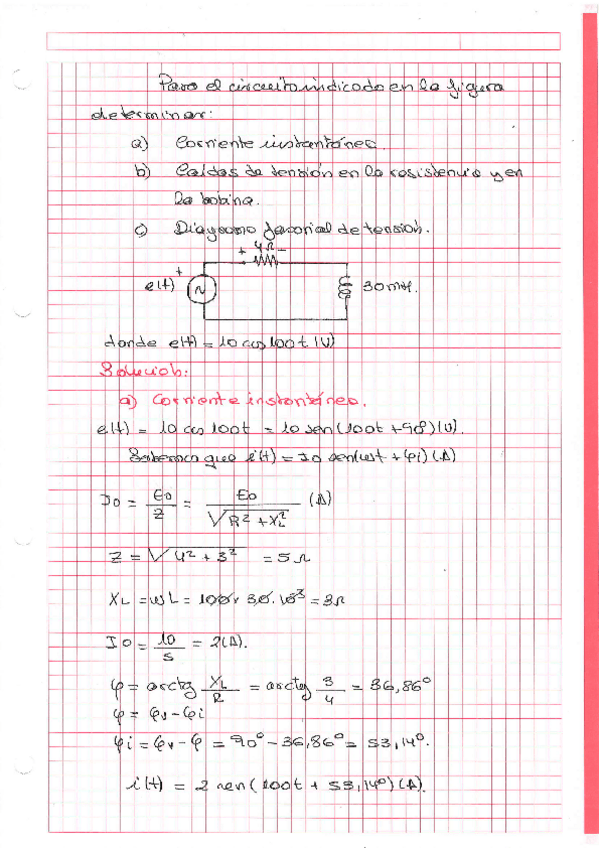 Para el circuito indicado en la figura
determinar:
a) Corriente instantánea.
b) Caídas de tensión en la resistencia y en
la bobina.
c) Diagrama fasorial de tensión.
+ 4Ω -
e(t) + ~ 30mH.
donde e(t) = 10 cos 100t (V)
Solución:
a) Corriente instantánea.
e(t) = 10 cos 100t = 10 sen(100t + 90°)(V).
Sabemos que i(t) = I0 sen(ωt + φi) (A)
I0 = E0/Z = E0/√(R² + XL²) (A)
Z = √(4² + 3²) = 5 Ω
XL = ωL = 100 · 30 · 10⁻³ = 3Ω
I0 = 10/5 = 2(A).
φ = arctg XL/R = arctg 3/4 = 36,86°
φ = φv - φi
φi = φv - φ = 90° - 36,86° = 53,14°.
i(t) = 2 sen(100t + 53,14°) (A).